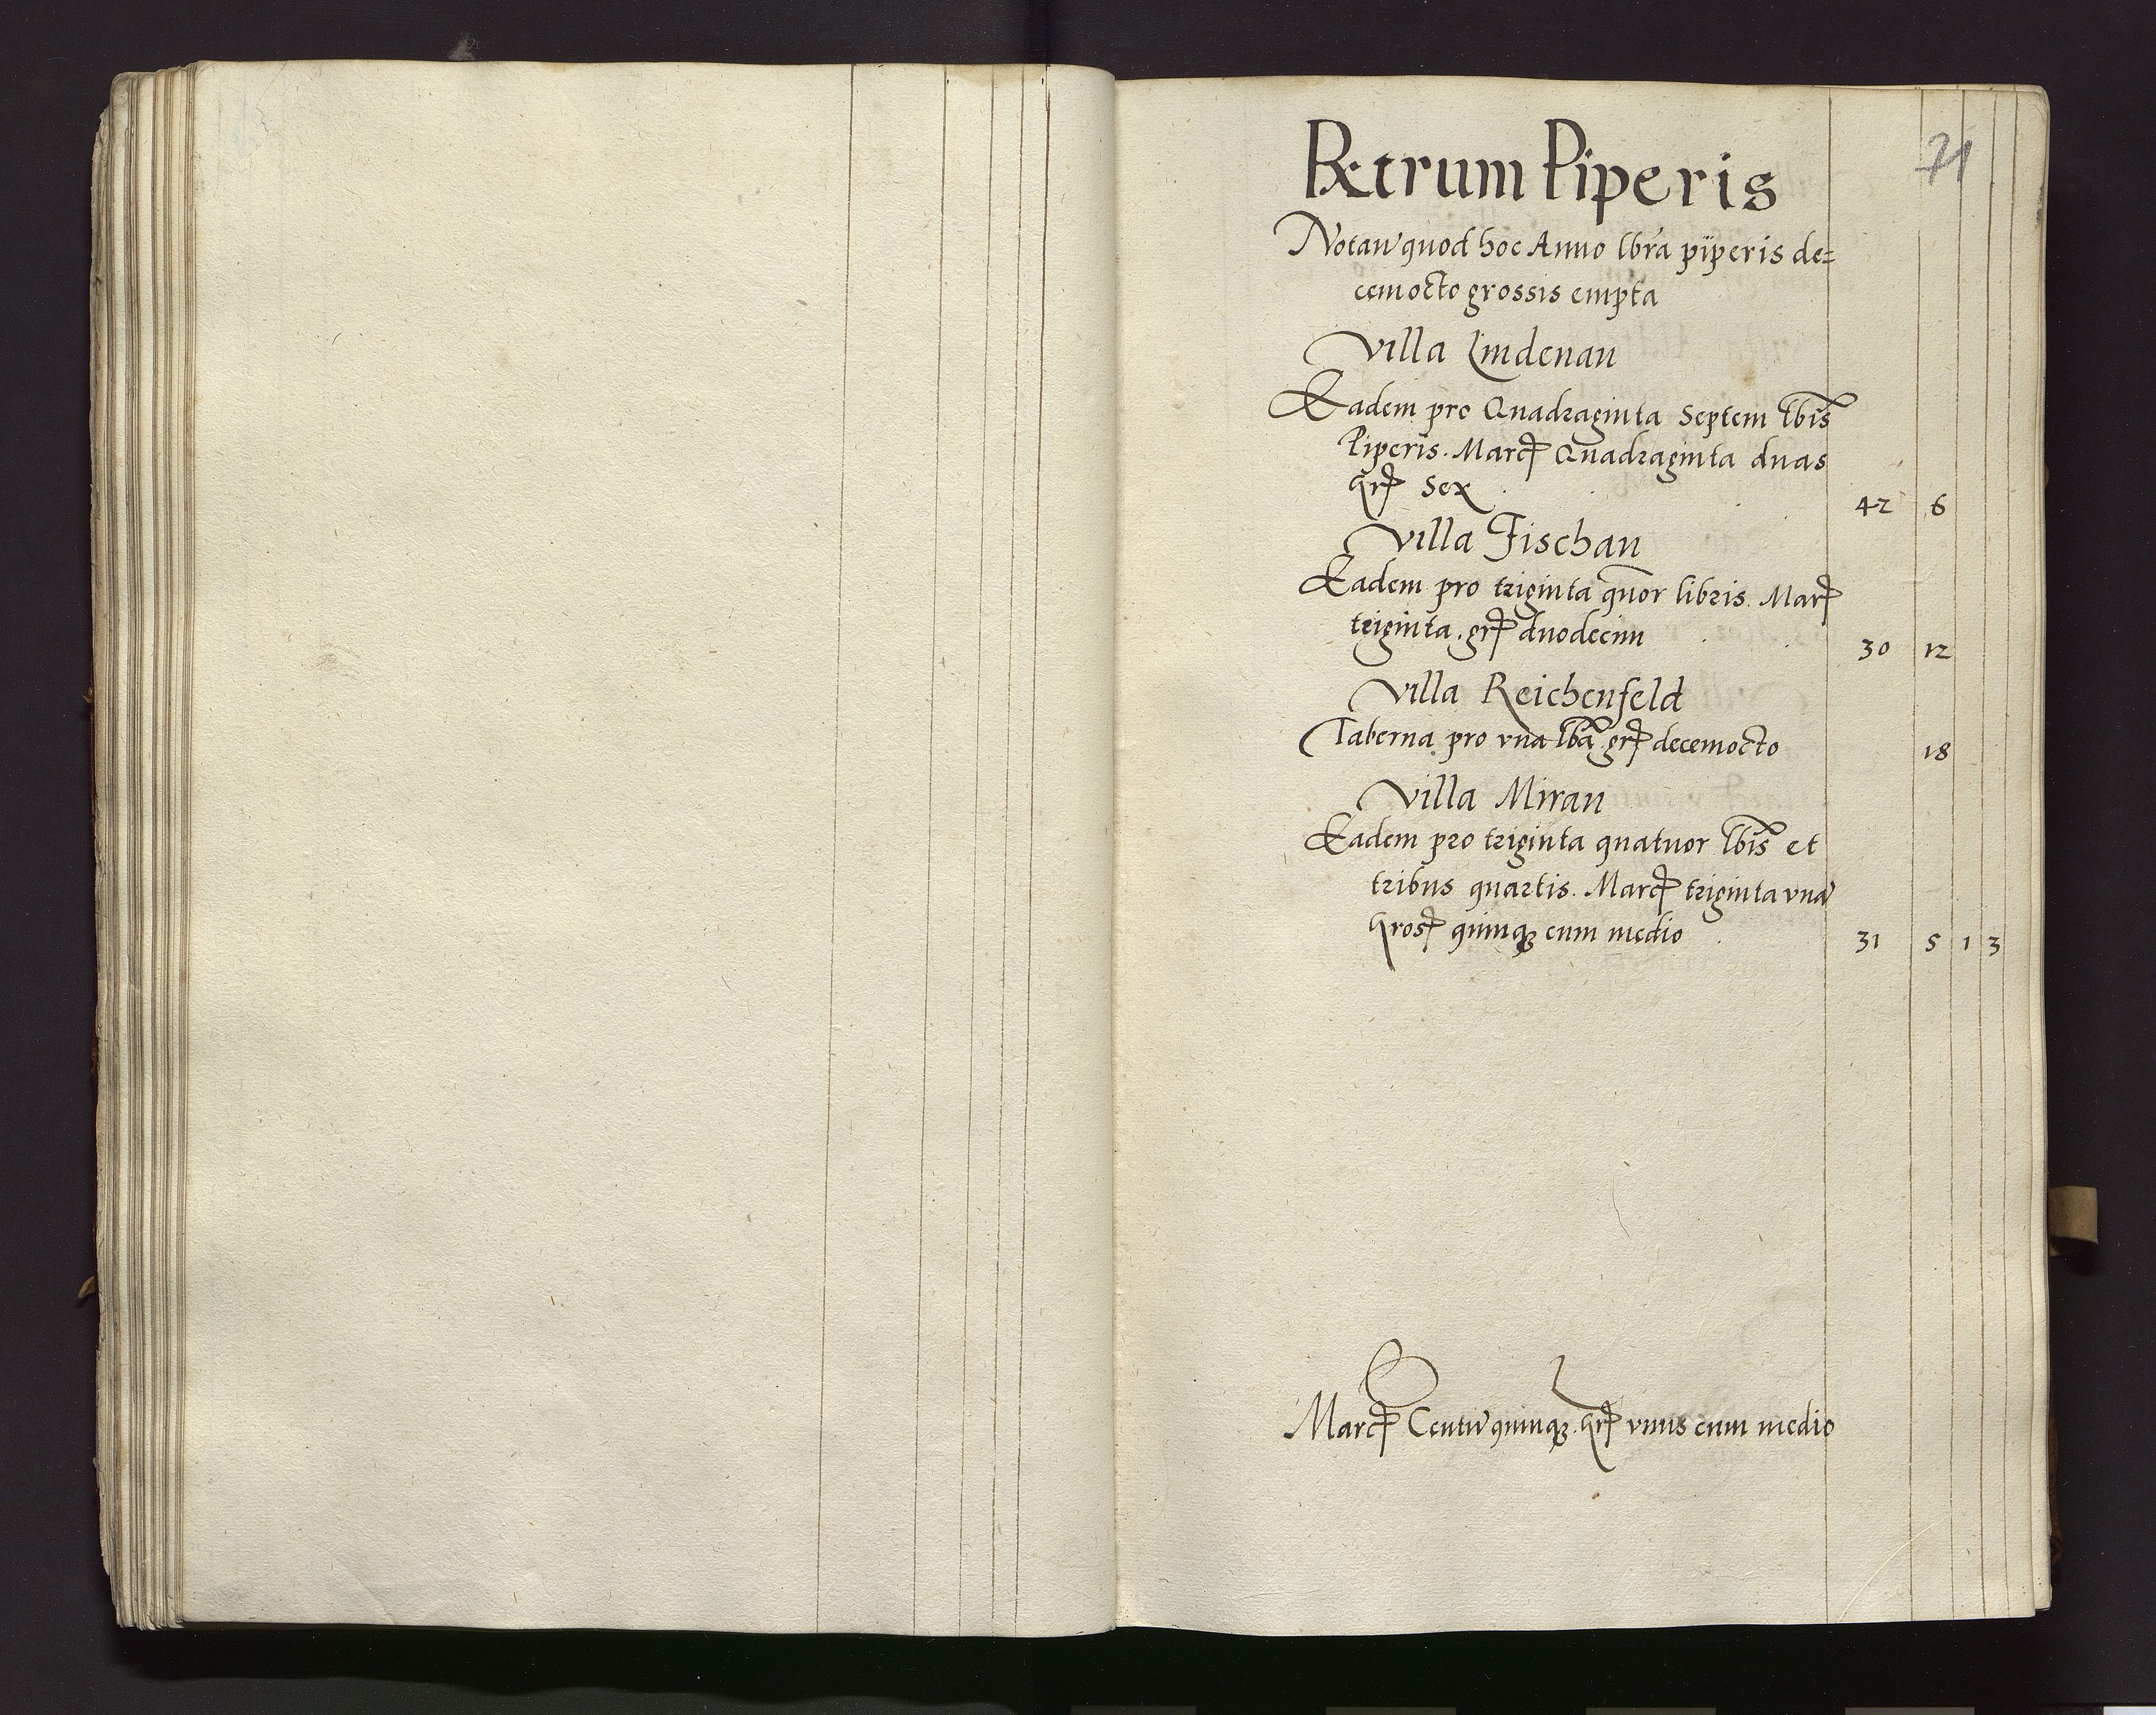 71
Rẽtrum Piperis
Notan̄ quod hoc Anno lbra piperis de=
cemocto grossis empta
Villa Lindenau
Eadem pro Quadraginta Septem lbis
Piperis. Marcꝭ Quadraginta duas
grꝭ Sex
42 6
Villa Fischau
Eadem pro triginta quor libris. Marꝭ
triginta. grꝭ duodecim
30 12
Villa Reichenfeld
Taberna pro vna lba grꝭ decemocto
18
Villa Mirau
Eadem pro triginta quatuor lbis et
tribus quartis. Marcꝭ triginta vnā
grosꝭ quinqꝫ cum medio
31 5 1 3
Marcꝭ Centū quinqꝫ. grꝭ vnus cum medio